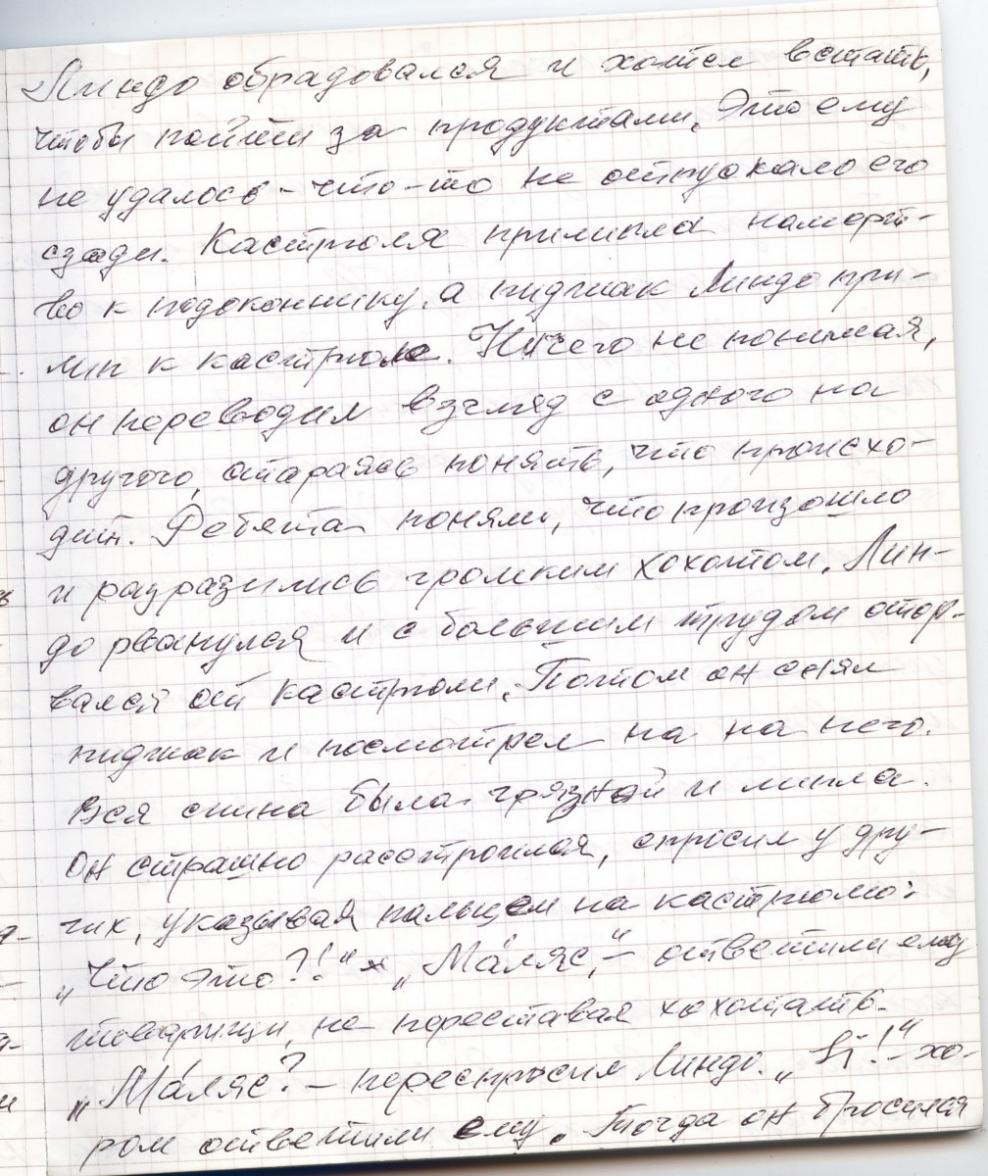 Линдо обрадовался и хотел встать,
чтобы пойти за продуктами. Это ему
не удалось – что-то не отпускало его
сзади. Кастрюля прилипла намерт-
во к подоконнику, а пиджак Линдо при-
лип к кастрюле. Ничего не понимая,
он переводил взгляд с одного на
другого, стараясь понять, что происхо-
дит. Ребята поняли, что произошло
и разразились громким хохотом. Лин-
до рванулся и с большим трудом отор-
вался от кастрюли. Потом он снял
пиджак и посмотрел на на него.
Вся спина была грязной и липла.
Он страшно расстроился, спросил у дру-
гих, указывая пальцем на кастрюлю:
„Что это?!“ „Ма́ляс“, – ответили ему
товарищи, не переставая хохотать.
„Ма́ляс? – переспросил Линдо. „Si!“ – хо-
ром ответили ему. Тогда он бросился